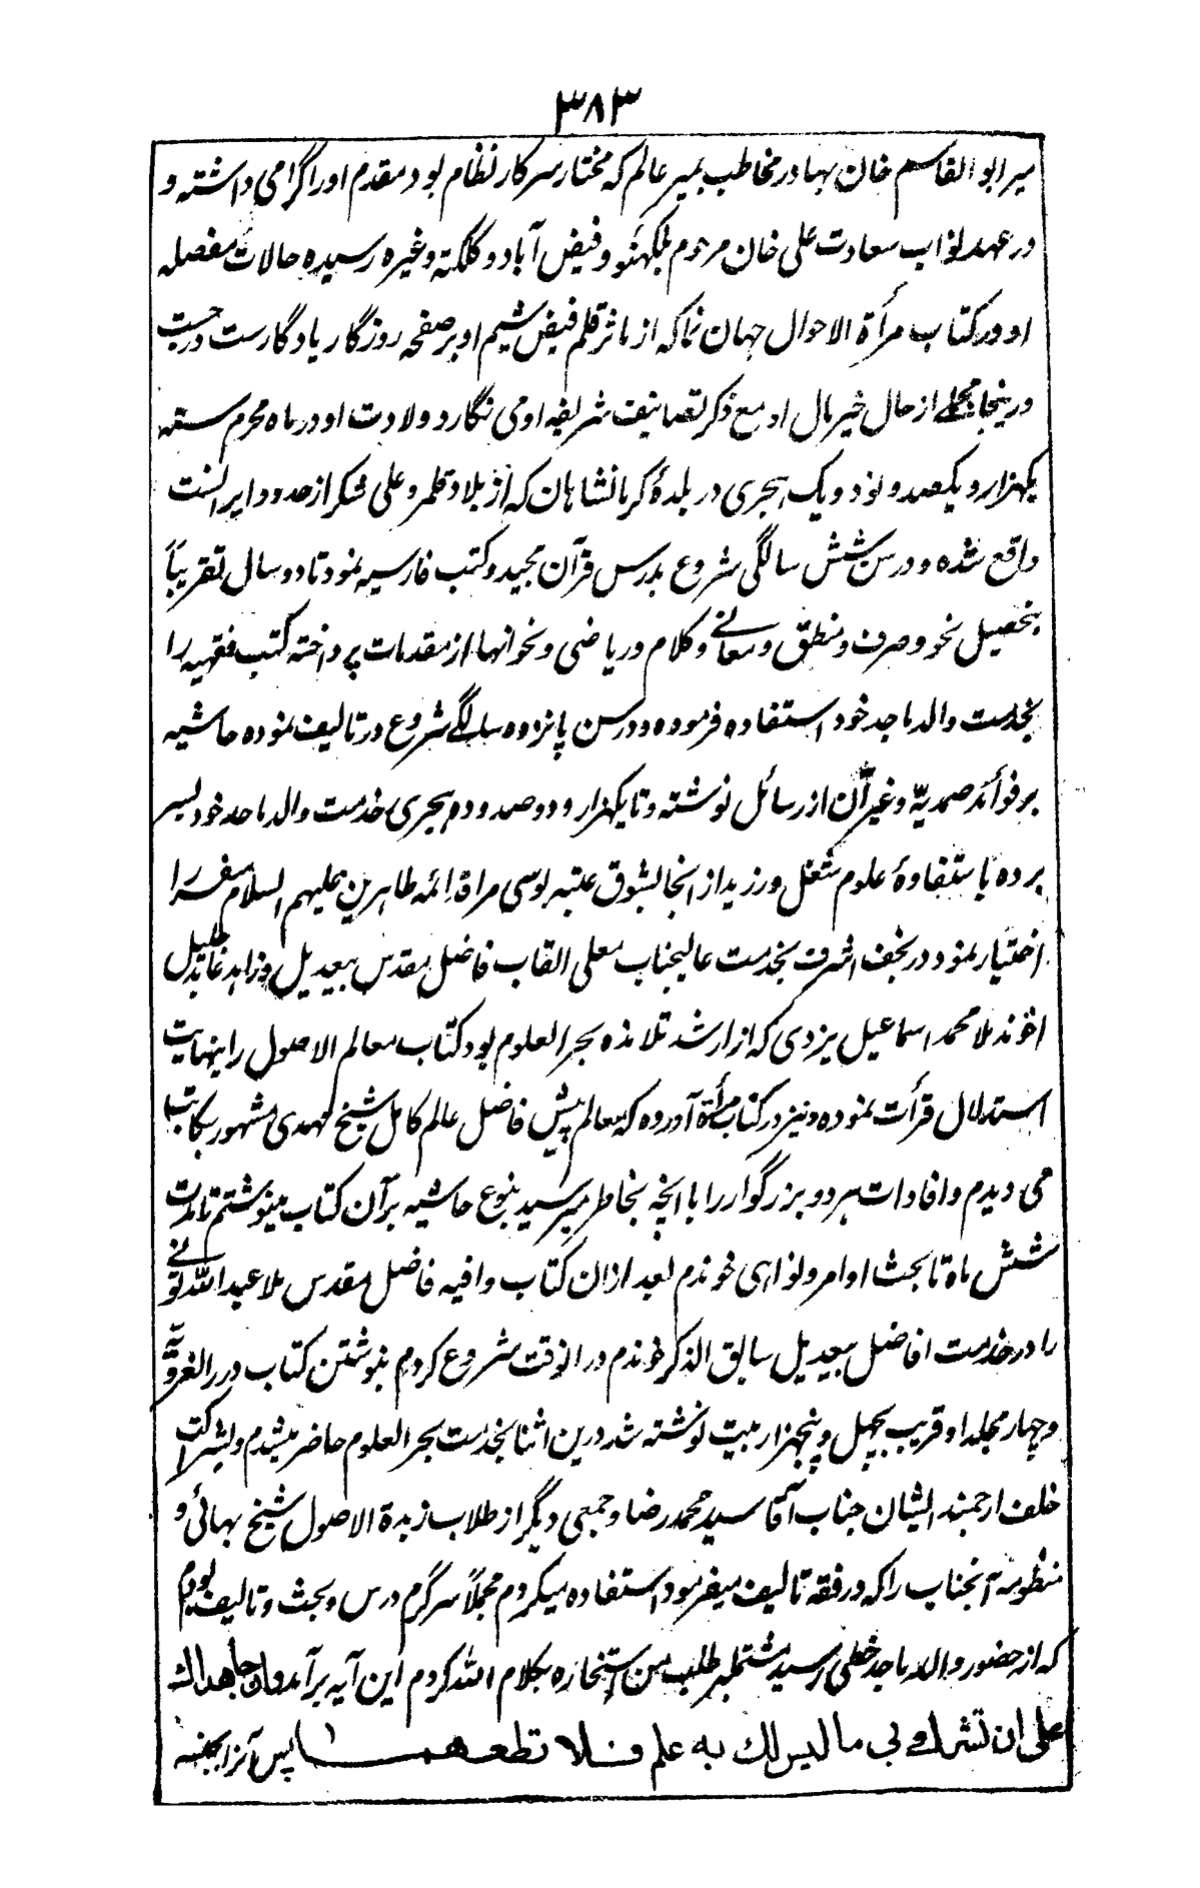 ۳۸۳
میر ابوالقاسم خان بهادر مخاطب بمیر عالم که مختار سرکار نظام بود مقدم او را گرامی داشته و
در عهد نواب سعادت علی خان مرحوم بلکهنئو و فیض آباد و کلکته وغیره رسیده حالات مفصله
او در کتاب مرأة الاحوال جهان نما که از مآثر قلم فیض شیم او بر صفحه روزگار یادگارست درجست
درینجا مجملے از حال خیر مال او مع ذکر تصانیف شریفه او می نگارد ولادت او در ماه محرم سنه
یکهزار و یکصد و نود و یک هجری در بلدهٔ کرمانشاهان که از بلاد قلمرو علی شکر از حدود ایرانست
واقع شده و در سن شش سالگی شروع بدرس قرآن مجید و کتب فارسیه نمود تا دو سال تقریباً
بتحصیل نحو و صرف و منطق و معانے و کلام و ریاضی و نحو انها از مقدمات پرداخته کتب فقهیه را
بخدمت والد ماجد خود استفاده فرموده و در سن پانزده سالگے شروع در تالیف نموده حاشیه
بر فوائد صمدیّه و غیر آن از رسائل نوشته و تا یکهزار و دو صد و دم هجری خدمت والد ماجد خود بسر
برده باستفادهٔ علوم شغل ورزید از انجا بشوق عتبه بوسی مراقد ائمه طاهرین علیهم السلام سفر را
اختیار نمود در نجف اشرف بخدمت عالیجناب معلی القاب فاضل مقدس بیعدیل و زاهد عابد جلیل
اخوند ملا محمد اسماعیل یزدی که از ارشد تلامذه بحر العلوم بود کتاب معالم الاصول را بنهایت
استدلال قرأت نموده و نیز در کتاب مرأة آورده که معالم پیش فاضل عالم کامل شیخ مهدی مشهور بکاتب
می دیدم و افادات هر دو بزرگوار را با انچه بخاطر میرسید بنوع حاشیه بر آن کتاب مینوشتم تا مدت
شش ماه تا بحث اوامر و نواهی خوندم بعد ازان کتاب وافیه فاضل مقدس ملا عبد الله تونے
را در خدمت افاضل بیعدیل سابق الذکر خوندم در انوقت شروع کردم بنوشتن کتاب درر الغرویّه
و چهار مجلد او قریب بچهل و پنجهزار بیت نوشته شد درین اثنا بخدمت بحر العلوم حاضر میشدم و بشراکت
خلف ارجمند ایشان جناب آقا سید محمد رضا و جمعی دیگر از طلاب زبدة الاصول شیخ بهائی و
منظومه آنجناب را که در فقه تالیف میفرمود استفاده میکردم مجملاً سرگرم درس و بحث و تالیف بودم
که از حضور والد ماجد خطی رسید مشتملبر طلب من استخاره بکلام الله کردم این آیه بر آمد وان جاهداك
علی ان تشرك بی ما لیس لك به علم فلا تطعهما پس آنرا بجنسه